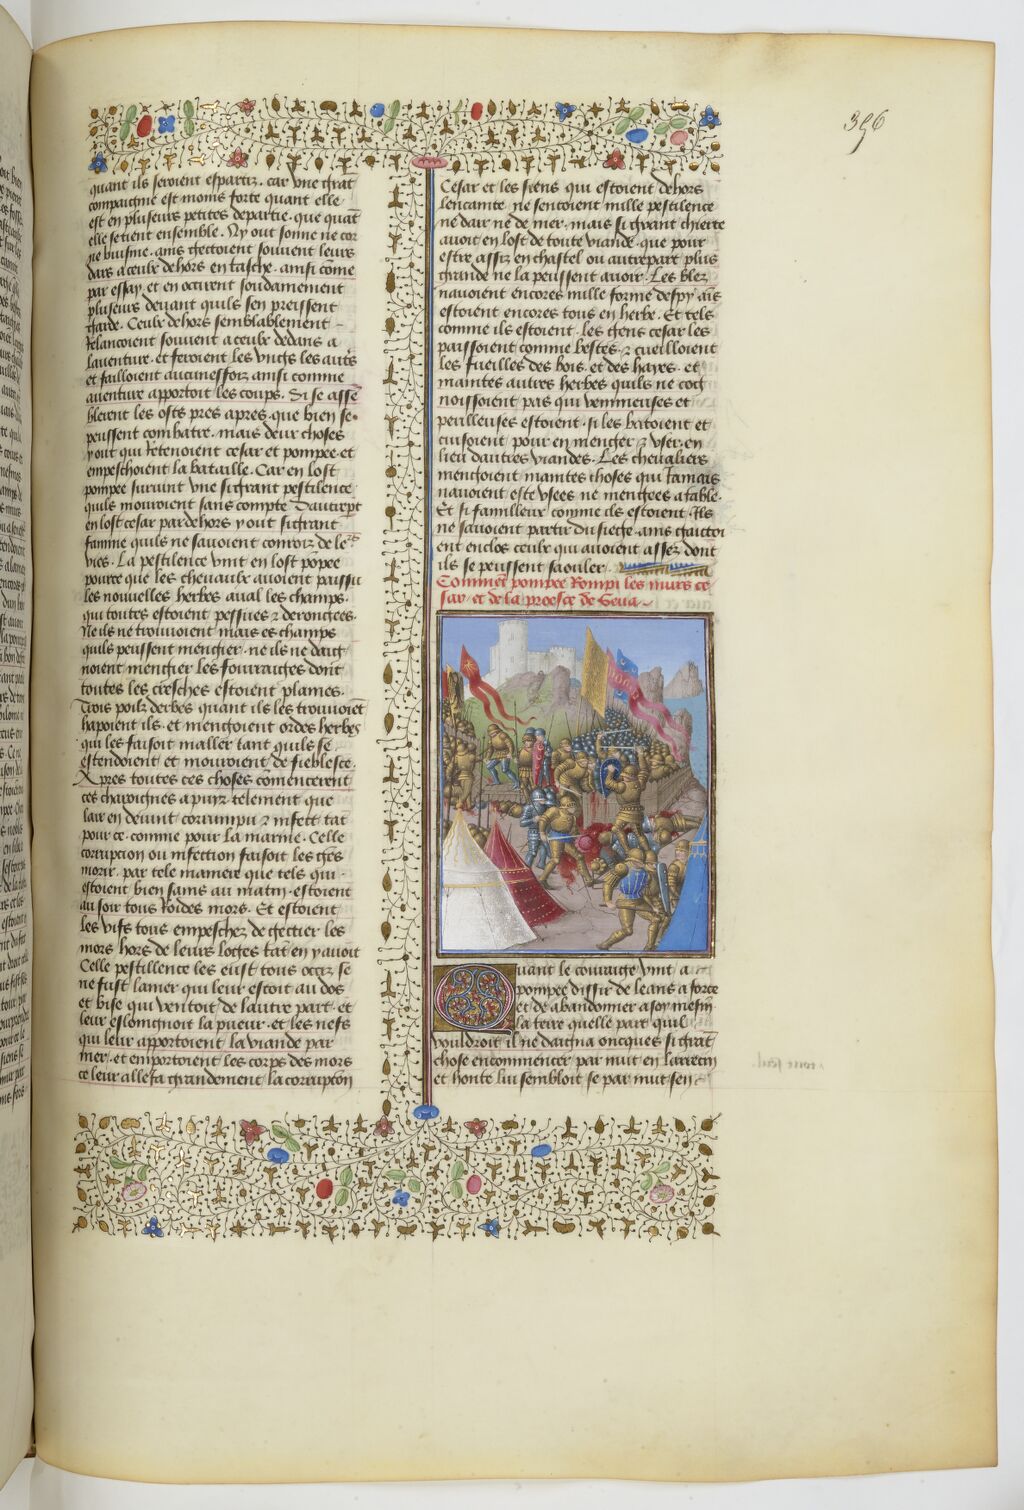 396
quant ilz seroient espartiz. car vne grāt
compaignie est moins forte quant elle
est en pluseurs petites departie. que quāt
elle se tient ensemble. Ny out sonne ne cor
ne buisine. ains gectoient souuent leurs
dars a ceulx dehors en tasche. ainsi cōme
par essay. et en occirent soudainement
pluseurs deuant quilz sen preissent
garde. Ceulx dehors semblablement
relancoient souuent a ceulx dedans a
lauenture. et feroient les vnegs les autrs
et failloient aucunesfoiz ainsi comme
auenture apportoit les coups. Si se assē
blerent les osts pres apres. que bien se
peussent combatre. mais deux choses
y out qui retenoient cesar et pompee. et
empeschoient la bataille. Car en lost
pompee suruint vne si grant pestilence
quilz mouroient sans compte Dautrept
en lost cesar par dehors y out si grant
famine quilz ne sauoient conroiz de le
vies. La pestilence vint en lost pōpee
pource que les cheuaulx auoient paissu
les nouuelles herbes aual les champs.
qui toutes estoient pessiees ⁊ derongees.
Ne ilz ne trouuoient mais es champs
quilz peussent mengier. ne ilz ne daig
noient mengier les fourraiges dont
toutes les cresches estoient plaines.
Trois poilz derbes quant ilz les trouuoiēt
hapoient ilz. et mengoient ordes herbes
qui les faisoit maller tant quilz se
estendoient et mouroient de fieblesce.
Apres toutes ces choses comencerent
ces charoignes a puyr telement que
lair en deuint corrumpu ⁊ infect tāt
pour ce. comme pour la marine. Celle
corrupcion ou infection faisoit les gēs
morir. par tele maniere que telz qui
estoient bien sains au matin. estoient
au soir tous roides mors. Et estoient
les vifs tous empeschez de gectier les
mors hors de leurs loges tāt en y auoit
Celle pestillence les eust tous occiz se
ne fust lamer qui leur estoit au dos
et bise qui ventoit de lautre part. et
leur eslongnoit la pueur. et les nefs
qui leur apportoient la viande par
mer. et emportoient les corps des mors
ce leur allega grandement la corrupcōn
Cesar et les siens qui estoient dehors
lencainte. ne sentoient mille pestilence
ne dair ne de mer. mais si grant chierte
auoit en lost de toute viande. que pour
estre assiz en chastel ou autrepart plus
grande ne la peussent auoir. Les blez
nauoient encores mille forme despy. ais
estoient encores tous en herbe. Et telz
comme ilz estoient. les gens cesar les
paissoient comme bestes. ⁊ cueilloient
les fueilles des bois. et des hayes. et
maintes autres herbes quilz ne cog
noissoient pas qui venimeuses et
perilleuses estoient. si les batoient et
cuisoient pour en mengier ⁊ vser. en
lieu dautres viandes. Les cheualiers
mengoient maintes choses qui iamais
nauoient este vsees ne mengees a table.
Et si familleux comme ilz estoient. Ilz
ne sauoient partir du siege. ains
ent enclos ceulx qui auoient assez dont
ilz se peussent saouler.
Comment pompee Rompi les murs ce
sar. et de la proesce de Seua.
Quant le couraige vint a
pompee dissir de leans a force
et de abandonner a soy mesm
la terre quelle part quil
vouldroit il ne daigna oncques si grāt
chose encommencer par nuit en larrecin
et honte lui sembloit se par nuit sen